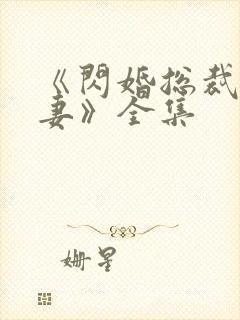 《閃婚總裁
妻》全集
姗星